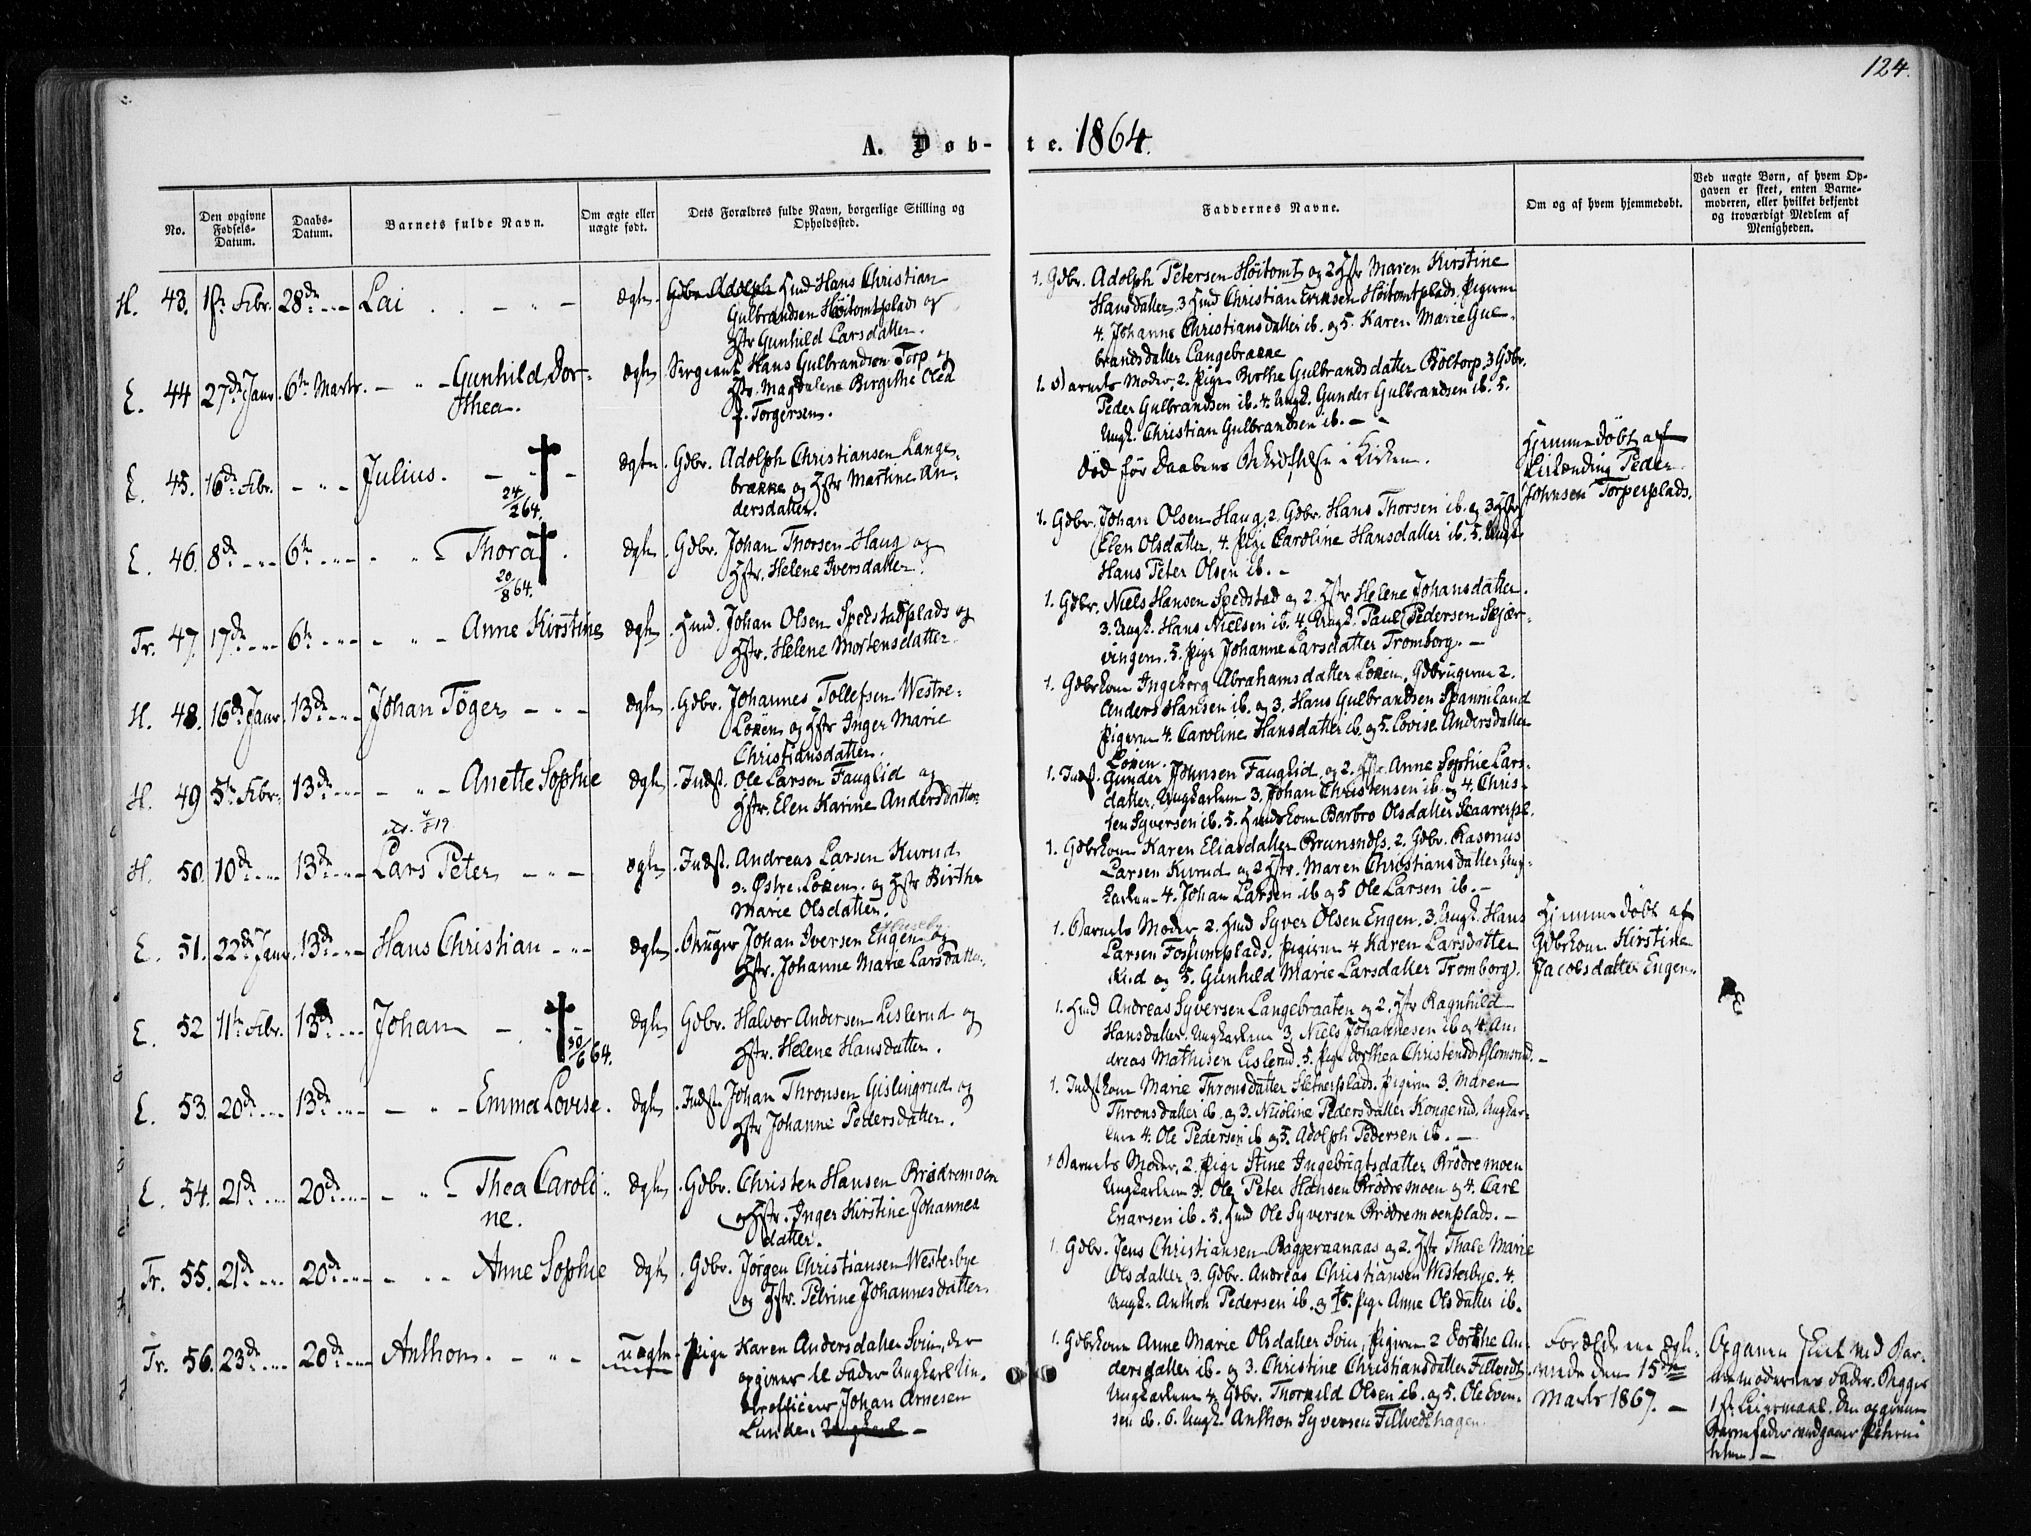 124.
A. Døb-
te. 1864.
No.
Den opgivne
Fødsels-
Datum.
Daabs-
Datum.
Barnets fulde Navn.
Om ægte eller
uægte født.
Dets Forældres fulde Navn, borgerlige Stilling og
Opholdssted.
Faddernes Navne.
Om og af hvem hjemmedøbt.
Ved uægte Børn, af hvem Op-
gaven er skeet, enten Barne-
moderen, eller hvilket bekjendt
og troværdigt Medlem af
Menigheden.
H. 43. 1ste Febr. 28de Lai ægte Gdbr. Adolph Hmd Hans Christian
Gulbrandsen Høitomtplads og
Hstr Gunhild Larsdatter.
1. Gdbr. Adolph Petersen Høitomt og 2 Hstr Maren Kirstine
Hansdatter. 3 Hmd Christian Eriksen Høitomtplads. Pigerne
4. Johanne Christiansdatter ib. og 5. Karen Marie Gul-
brandsdatter Langebrække
E. 44 27de Janr. 6te Marts. Gunhild Dor-
thea. ægte Sergeant Hans Gulbrandsen Torp og
Hstr. Magdalene Birgithe Oled
f. Torgersen.
1. Barnets Moder, 2. Pige Berthe Gulbrandsdatter Bøltorp, 3 Gdbr.
Peder Gulbrandsen ib. 4. Ungk. Gunder Gulbrandsen ib. 5.
Ungk. Christian Gulbrandsen ib.
E. 45. 16de Febr. Julius.
24/2 64.
ægte Gdbr. Adolph Christiansen Lange-
brække og Hstr Martine An-
dersdatter.
død før Daabens Bekræftelse i Kirken.
Hjemmedøbt af
Peder
Johnsen Torperplads.
E. 46. 8de 6te Thora
20/8 64.
ægte Gdbr. Johan Thorsen Haug og
Hstr. Helene Iversdatter.
1. Gdbr. Johan Olsen Haug, 2. Gdbr. Hans Thorsen ib. og 3 Hstr
Elen Olsdatter, 4. Pige Caroline Hansdatter ib. 5. Ungk.
Hans Peter Olsen ib.
Tr. 47. 17de 6te Anne Kirstine ægte Hmd. Johan Olsen Spedstadplads og
Hstr. Helene Mortensdatter.
1. Gdbr. Niels Hansen Spedstad og 2. Hstr Helene Johansdatter.
3. Ungk. Hans Nielsen ib. 4. Ungk. Paul Pedersen Skjær-
vingen. 5. Pige Johanne Larsdatter Tromborg.
H. 48. 16de Janr. 13de Johan Tøger ægte Gdbr. Johannes Tollefsen Westre-
Løken og Hstr Inger Marie
Christiansdatter.
1. Gdbrkone Ingeborg Abrahamsdatter Løken, Gdbrugerne 2.
Anders Hansen ib. og 3. Hans Gulbrandsen Spanniland
Pigerne 4. Caroline Hansdatter ib. og 5. Lovise Andersdatter
Løken.
H. 49 5te Febr. 13de Anette Sophie ægte Indst. Ole Larsen Fauglid og
Hstr. Elen Karine Andersdatter
1. Indst. Gunder Johnsen Fauglid og 2. Hstr. Anne Sophie Lars-
datter, Ungkarlene 3. Johan Christensen ib. og 4. Chris-
ten Syversen ib. 5. Hmdskone Barbro Olsdatter Skaarerpl.
H. 50. 10de 13de Lars Peter ægte Indst. Andreas Larsen Kurud
Østre Løken og Hstr Birthe
Marie Olsdatter.
1. Gdbrkone Karen Eliasdatter 2. Gdbr. Rasmus
Larsen Kurud og 3 Hstr. Maren Christiansdatter Ung-
karlene 4. Johan Larsen ib og 5 Ole Larsen ib.
E. 51. 22de Janr. 13de Hans Christian ægte Bruger Johan Iversen Engen og
Hstr. Johanne Marie Larsdatter.
1. Barnets Moder 2. Hmd Syver Olsen Engen. 3. Ungk. Hans
Larsen Fossumplads. Pigerne 4 Karen Larsdatter
og 5. Gunhild Marie Larsdatter Tromborg.
Hjemmedøbt af
Gdbrkone Kirstine
Jacobsdatter Engen
E. 52 11te Febr. 13de Johan
30/6 64.
ægte Gdbr. Halvor Andersen Lislerud og
Hstr. Helene Hansdatter.
1. Hmd Andreas Syversen Langebraaten og 2. Hstr Ragnhild
Hansdatter. Ungkarlene 3. Niels Johannesen ib og 4. An-
dreas Mathisen Lislerud. 5. Pige Dorthea Christensdt Glomsrud.
E. 53. 20de 13de Emma Lovise. ægte Indst. Johan Thronsen Gislingrud og
Hstr Johanne Pedersdatter.
1. Indstkone Marie Thronsdatter Sletnerplads. Pigerne 3. Maren
Thronsdatter ib. og 3. Nicoline Pedersdatter Kongerud. Ungkar-
lene 4. Ole Pedersen ib og 5. Adolph Pedersen ib.
E. 54. 21de 20de Thea Caroli
ne. ægte Gdbr. Christen Hansen Brødremoen
og Hstr. Inger Kirstine Johannes
datter.
1 Barnets Moder, 2. Pige Stine Ingebrigtsdatter Brødremoen
Ungkarlene 3. Ole Peter Hansen Brødremoen og 4. Carl
Enarsen ib. 5. Hmd Ole Syversen Brødremoenplads.
Tr. 55. 21de 20de Anne Sophie ægte Gdbr. Jørgen Christiansen Westerbye
og Hstr. Petrine Johannesdatter.
1. Gdbr. Jens Christiansen Baggeraanaas og 2. Hstr Thale Marie
Olsdatter, 3. Gdbr. Andreas Christiansen Westerbye. 4.
Ungk. Anthon Pedersen ib. og 5. Pige Anne Olsdatter ib.
Tr. 56. 23de 20de Anthon. uægte Pige Karen Andersdatter Svin, der
opgiver til Fader Ungkarl Un-
derofficeer Johan Arnesen
Lunde.
1. Gdbrkone Anne Marie Olsdatter Svin, Pigerne 2 Dorthe An-
dersdatter ib. og 3. Christine Christiansdatter Fillvedt.
Ungkarlene 4. Gdbr. Thorkild Olsen ib. og 5. Ole Even-
sen ib. 6. Ungk. Anthon Syversen Fillvedthagen.
Forældrene ægte-
viede den 15de
Marts 1867.
Opgaven skeet ved Bar-
nemoderens Fader. Begges
1ste Leiermaal. Den opgivne
Barnefader vedgaaer Paterni
teten.